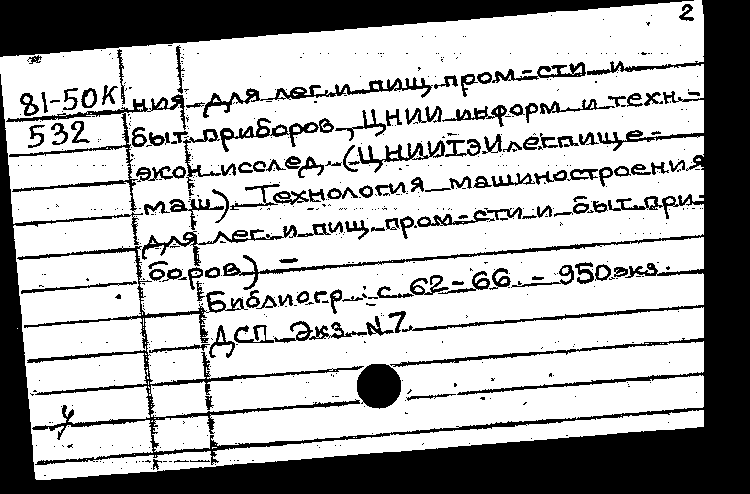 2
81-50К ния для лег. и пищ. пром-сти и
532 быт. приборов, ЦНИИ информ. и техн.-
экон. исслед. (ЦНИИТЭИлегпище-
маш). Технология машиностроения
для лег. и пищ. пром-сти и быт. при-
боров) –
Библиогр.: с. 62-66. – 950 экз.
ДСП. Экз. N 7.